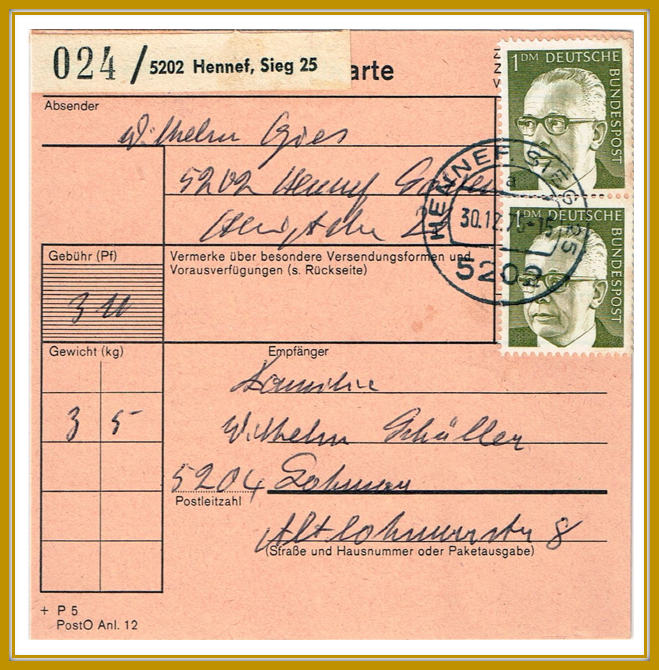 024 / 5202 Hennef, Sieg 25
arte
Absender
Wilhelm Gies
5202 Hennef
Gebühr (Pf)
Vermerke über besondere Versendungsformen und
Vorausverfügungen (s. Rückseite)
1 DM DEUTSCHE
BUNDESPOST
1 DM DEUTSCHE
BUNDESPOST
HENNEF, SIEG 25
a
30.12.7
5202
Gewicht (kg)
3 5
Empfänger
Familie
Wilhelm Schüller
5204 Lohmar
Postleitzahl
Altlohmarerstr 8
(Straße und Hausnummer oder Paketausgabe)
+ P 5
PostO Anl. 12